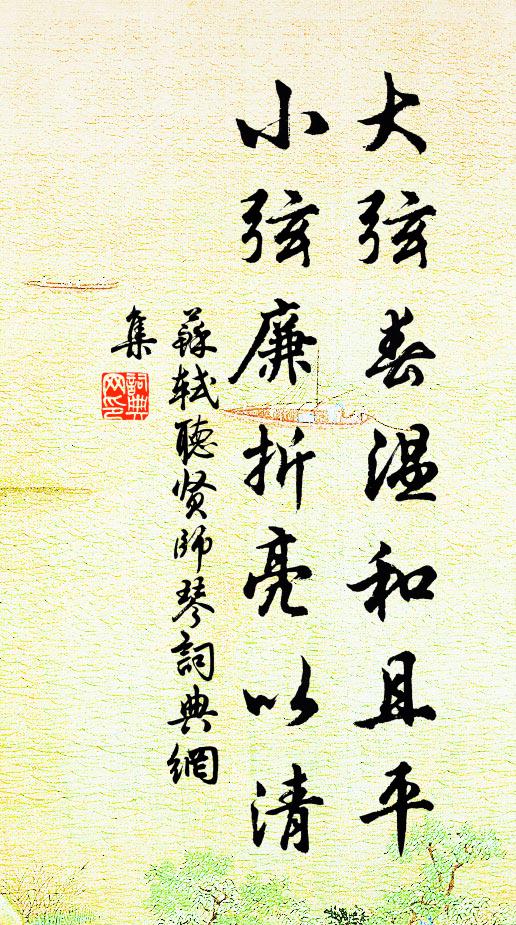 大弦春温和且平
小弦廉折亮以清
蘇轼聽贤師琴詞典網
集
詞典
网印